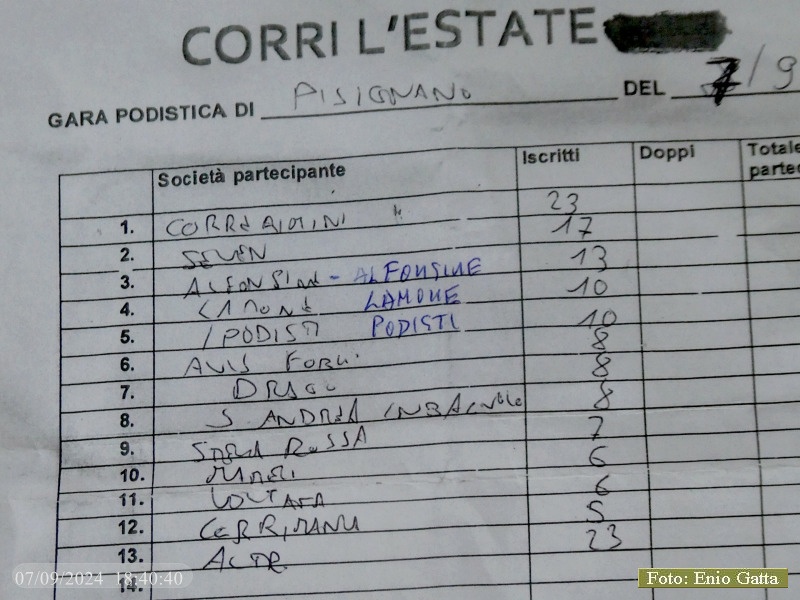 CORRI L'ESTATE
GARA PODISTICA DI PISIGNANO DEL 7/9
Società partecipante Iscritti Doppi Totale
1. 23
2. SEVEN 17
3. ALFONSINE - ALFONSINE 13
4. LAMONE LAMONE 10
5. I PODISTI PODISTI 10
6. AVIS FORLI' 8
7. DRAGO 8
8. S ANDREA IN BAGNOLO 8
9. STELLA ROSSA 7
10. 6
11. VOLTANA 6
12. 5
13. 23
14.
07/09/2024 18:40:40
Foto: Enio Gatta